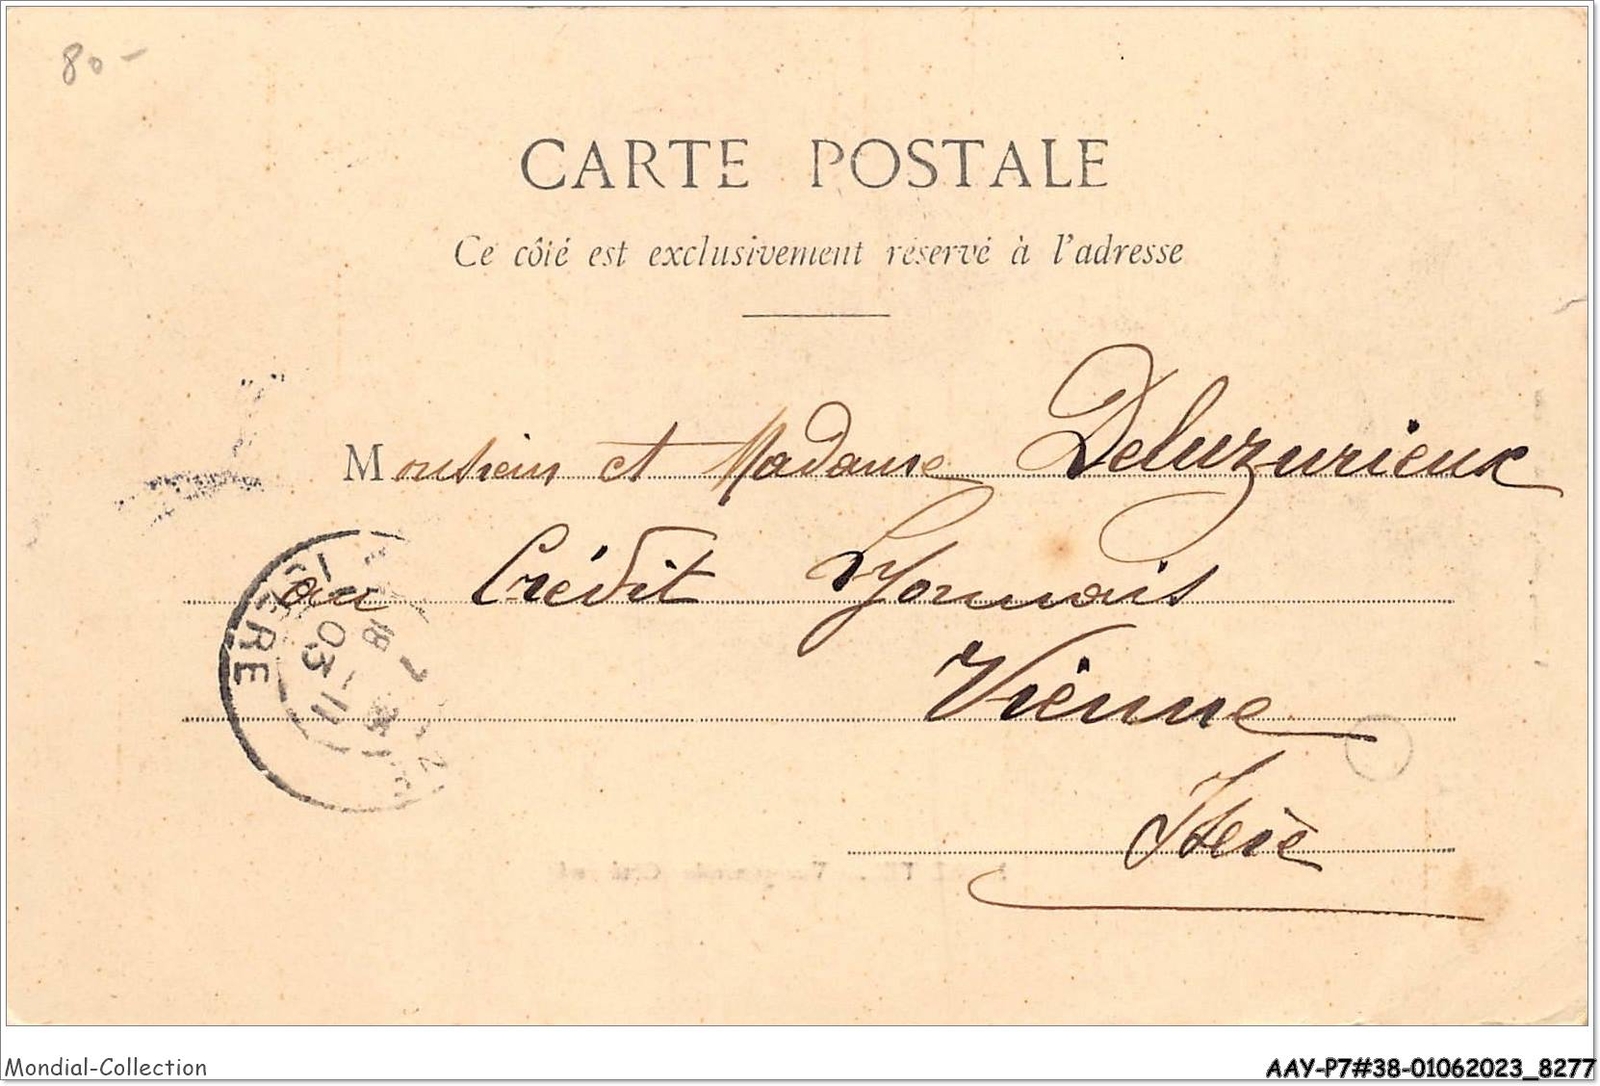 80-
CARTE POSTALE
Ce côté est exclusivement réservé à l'adresse
Monsieur et Madame Deluzurieux
au Crédit Lyonnais
Vienne
Isère
ISERE
18
11
03
Mondial-Collection
AAY-P7#38-01062023_8277